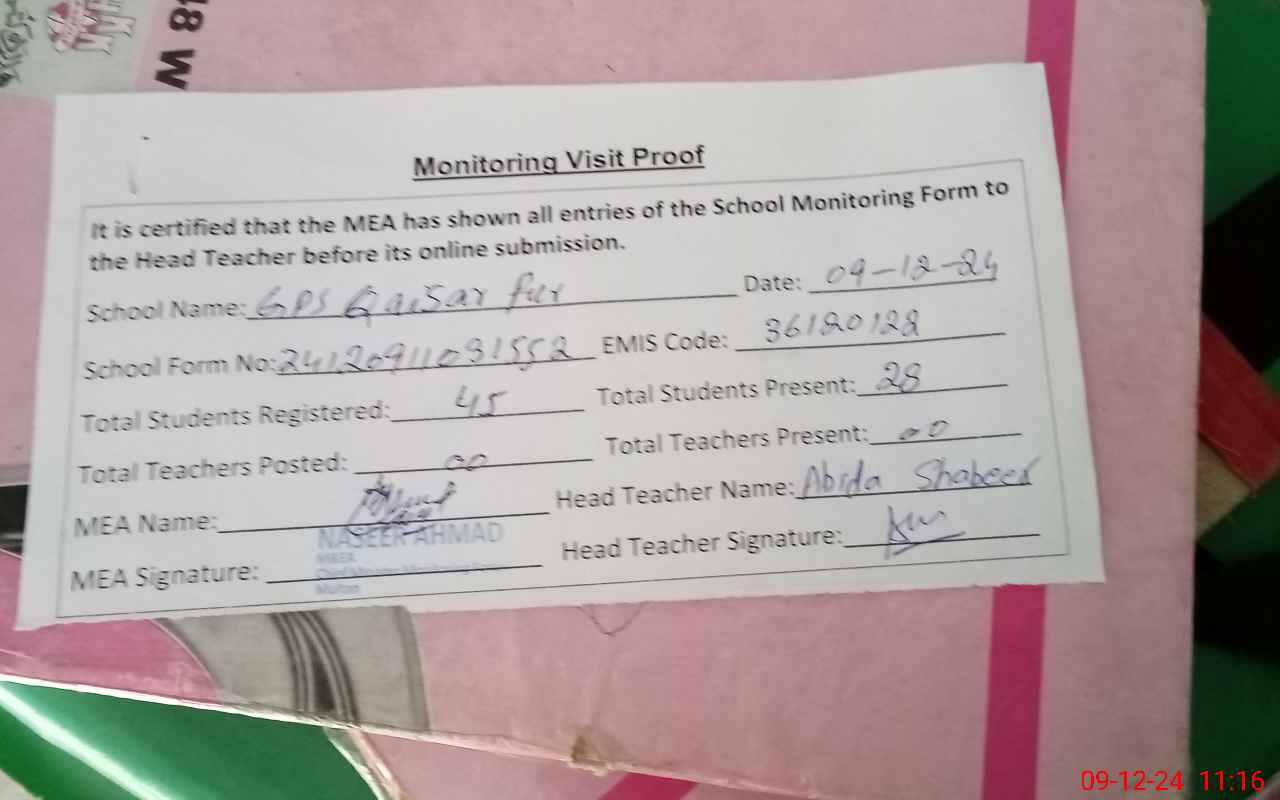 48 W
Monitoring Visit Proof
It is certified that the MEA has shown all entries of the School Monitoring Form to
the Head Teacher before its online submission.
School Name: GPS Qaisar Pur Date: 09-12-24
School Form No: 24120911031552 EMIS Code: 36120122
Total Students Registered: 45 Total Students Present: 28
Total Teachers Posted: 00 Total Teachers Present: 00
MEA Name: Head Teacher Name: Abida Shabeer
NASEER AHMAD
MEA Signature: Head Teacher Signature:
Multan
09-12-24 11:16